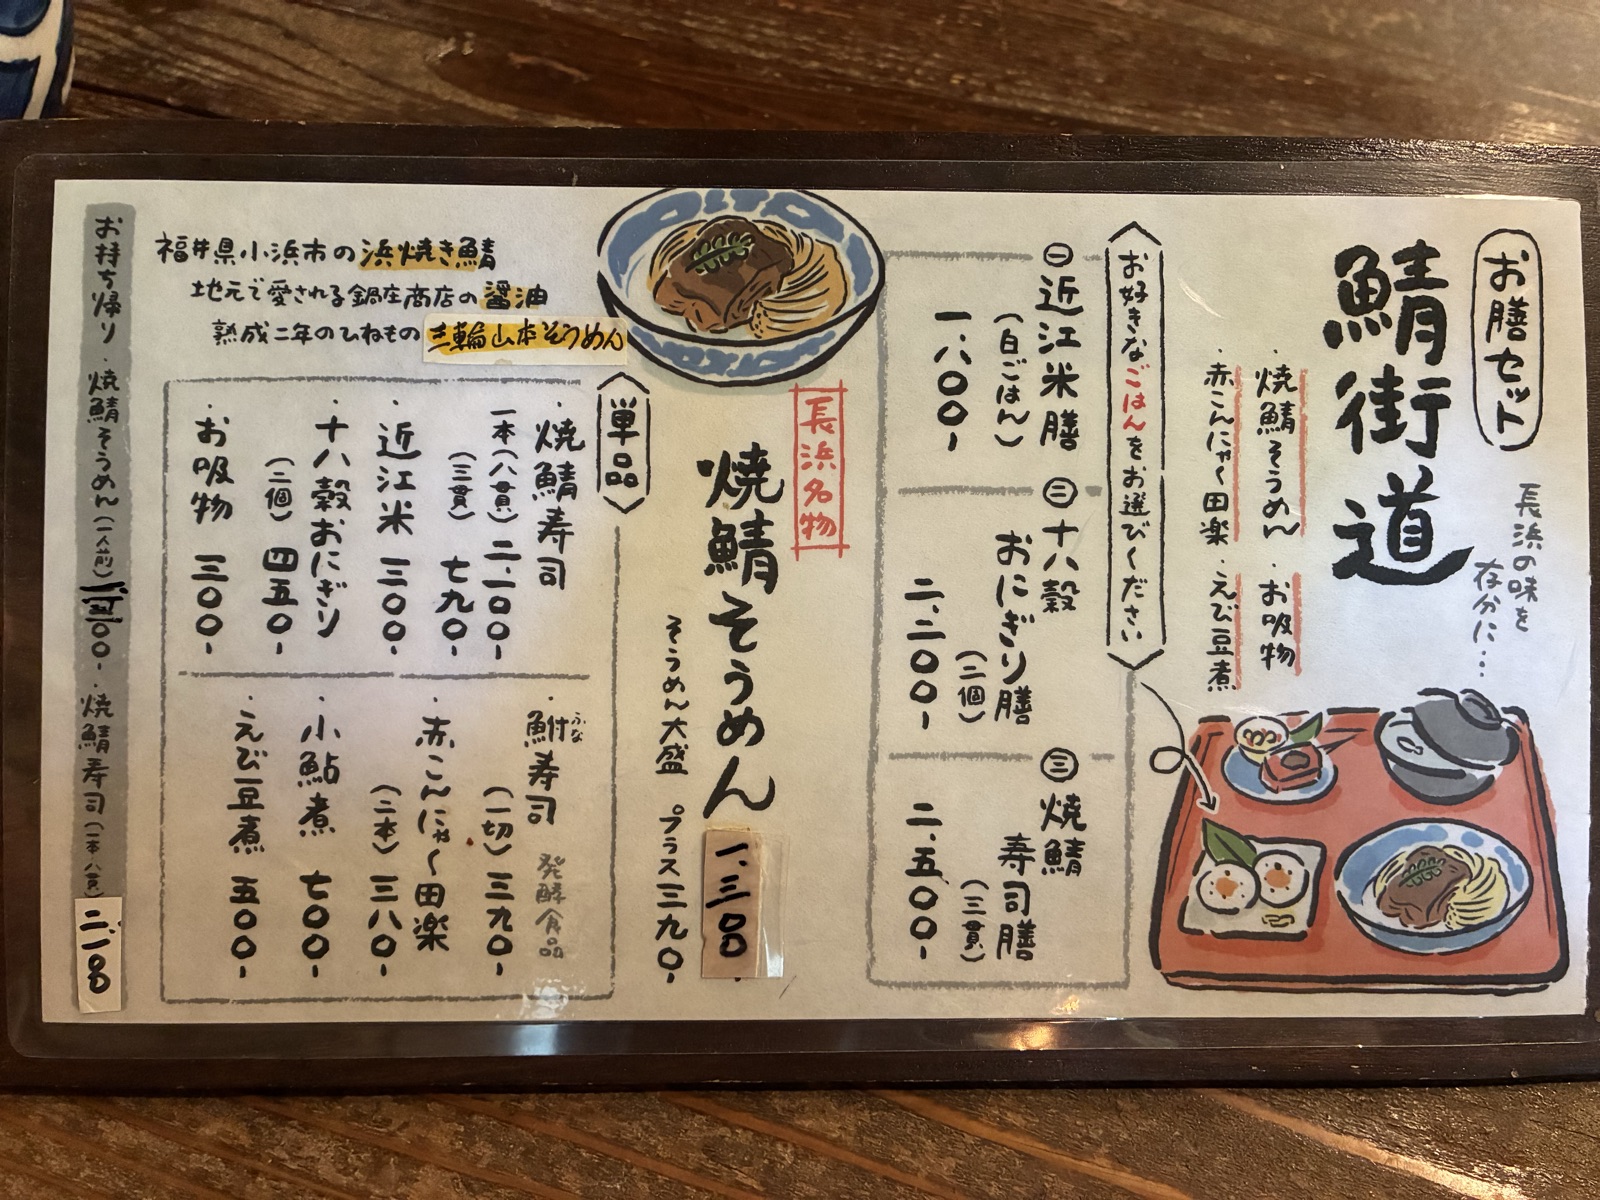 お膳セット
鯖街道
長浜の味を
存分に…
・焼鯖そうめん ・お吸物
・赤こんにゃく田楽 ・えび豆煮
お好きなごはんをお選びください
一 近江米膳
(白ごはん)
一、八〇〇-
二 十八穀
おにぎり膳
(二個)
二、二〇〇-
三 焼鯖
寿司膳
(三貫)
二、五〇〇-
長浜名物
焼鯖そうめん 一、三〇〇-
そうめん大盛 プラス三九〇-
福井県小浜市の浜焼き鯖
地元で愛される鍋庄商店の醤油
熟成二年のひねもの三輪山本そうめん
単品
・焼鯖寿司
一本(八貫)二、一〇〇-
(三貫) 七九〇-
・近江米 三〇〇-
・十八穀おにぎり
(二個) 四五〇-
・お吸物 三〇〇-
・鮒寿司 発酵食品
ふな
(一切)三九〇-
・赤こんにゃく田楽
(二本)三八〇-
・小鮎煮 七〇〇-
・えび豆煮 五〇〇-
お持ち帰り ・焼鯖そうめん(一人前) 〇〇- ・焼鯖寿司(一本・八貫) 二、一〇〇